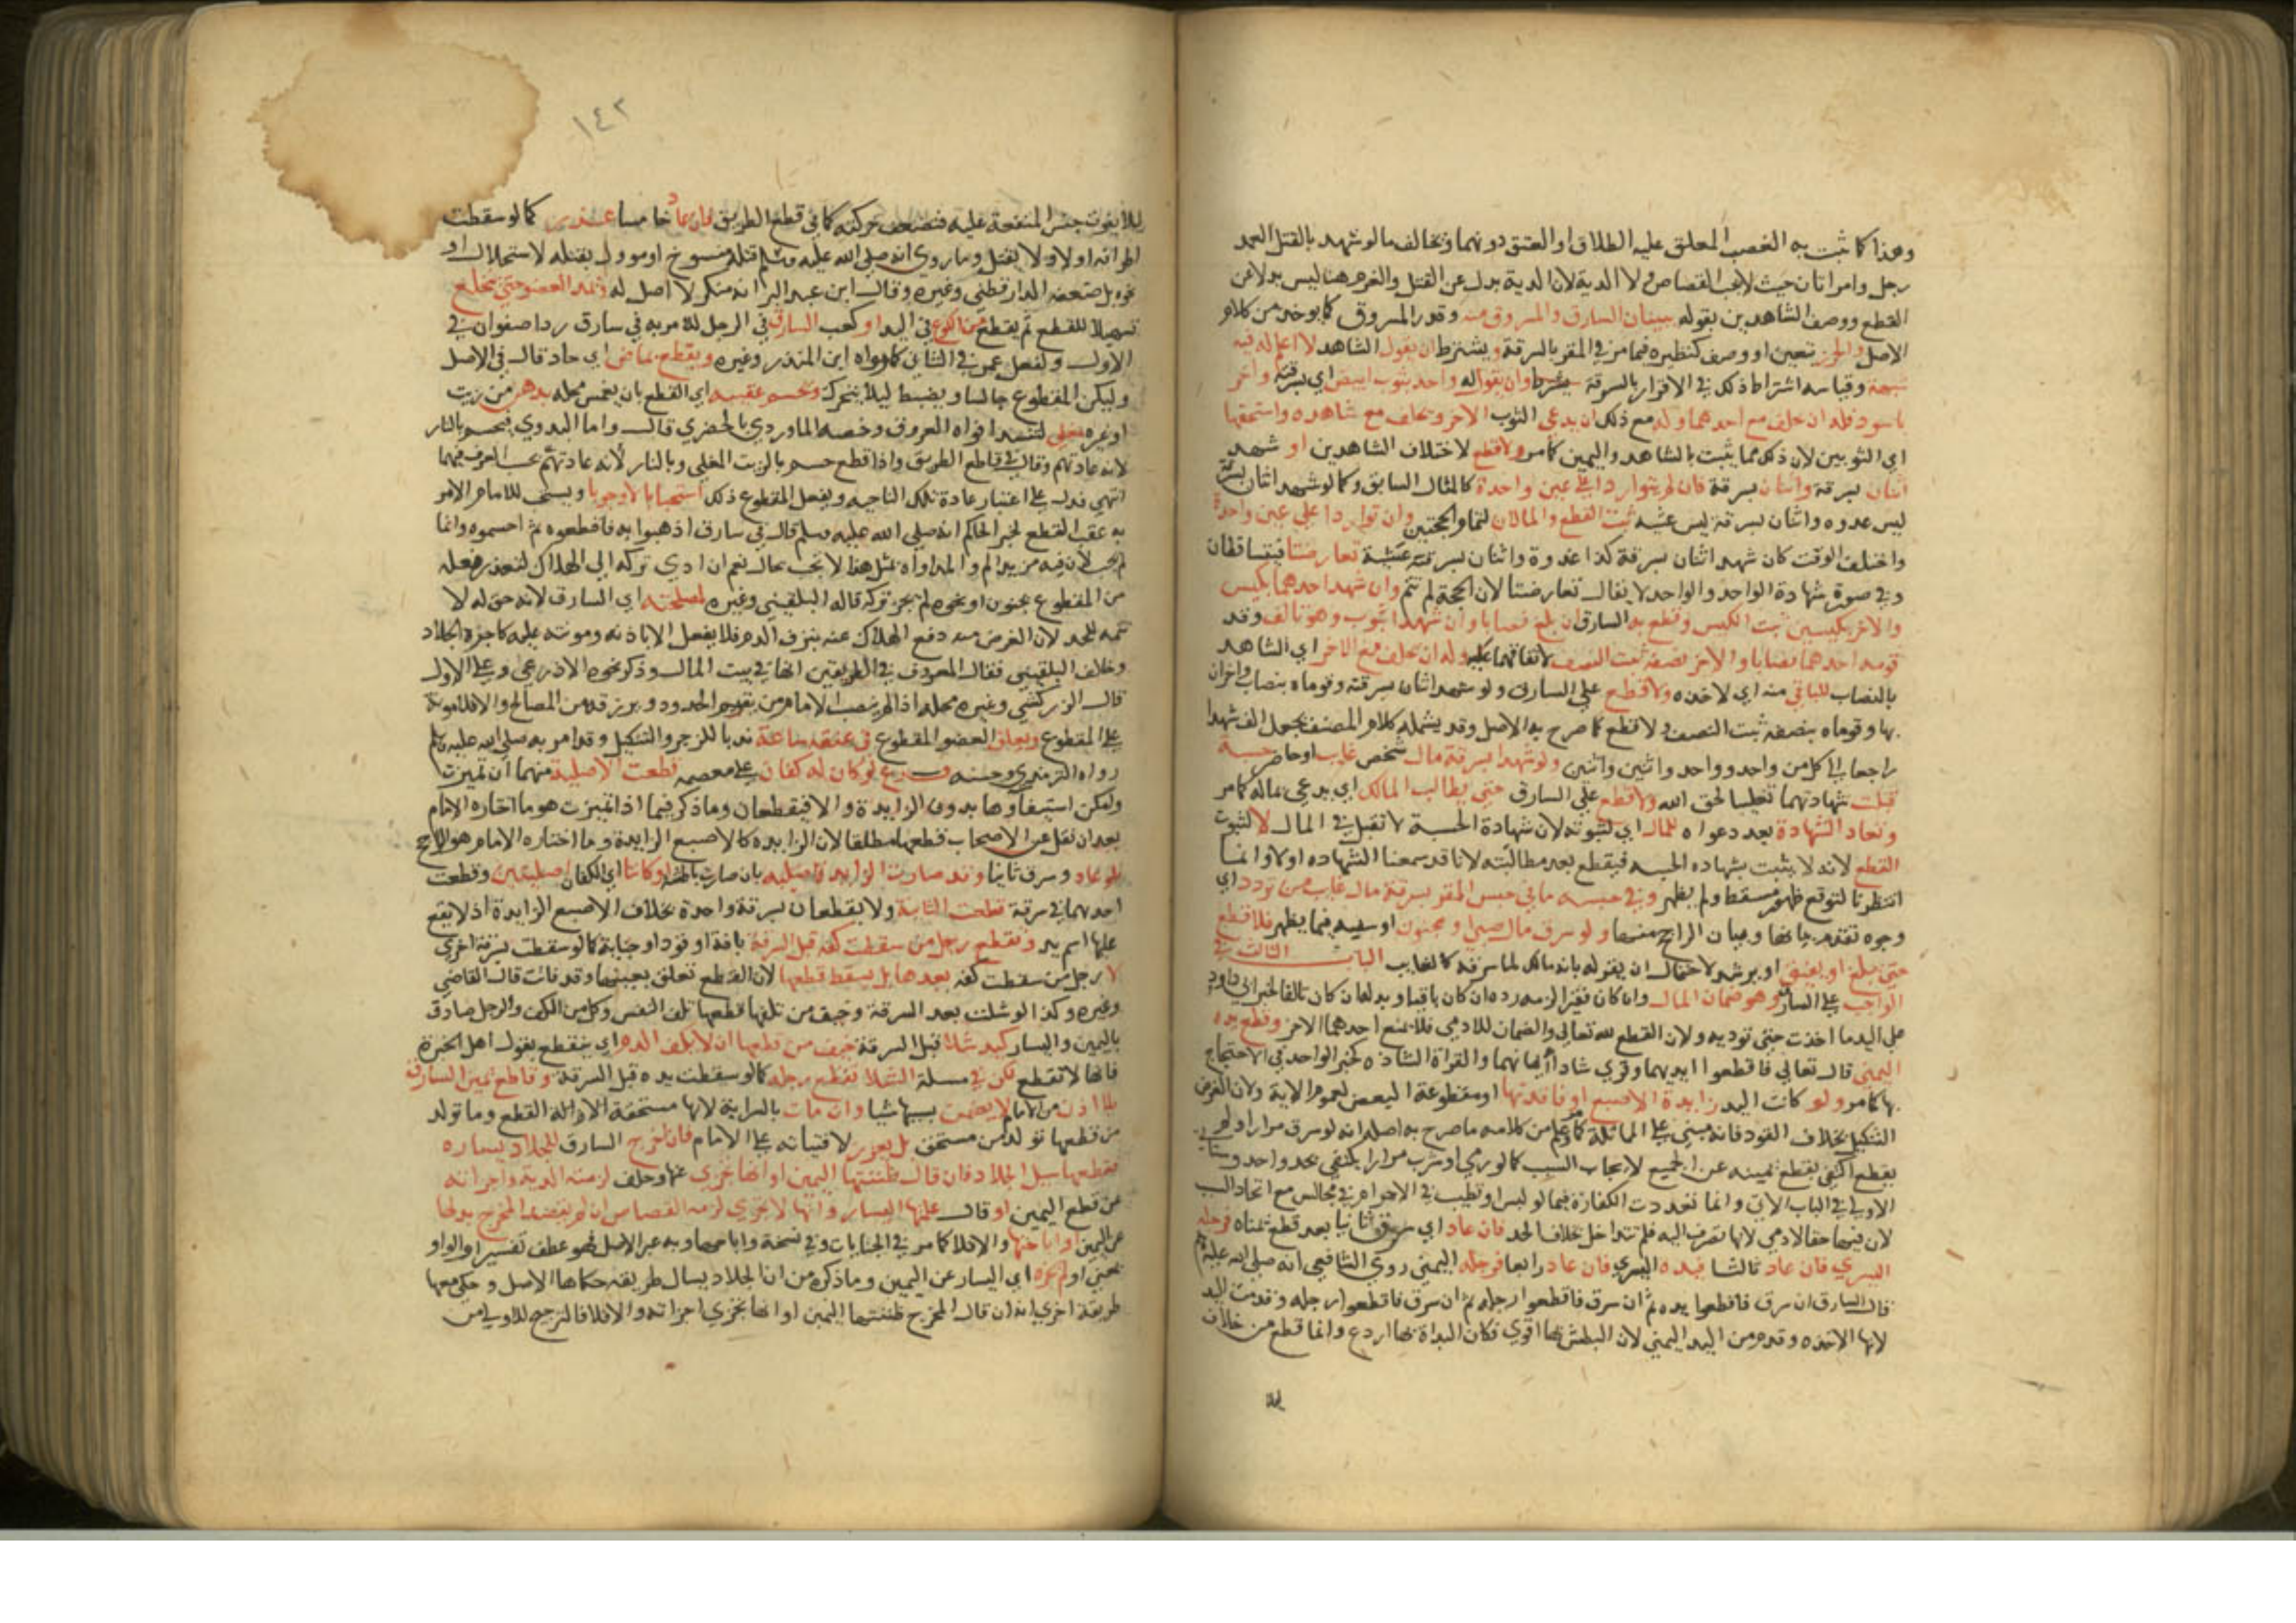 وهذا كما ثبت به الغصب المعلق عليه الطلاق او العتق دونهما وتخالف ما لو شهد بالقتل العمد
رجل وامراتان حيث لا يجب القصاص ولا الدية لان الدية بدل عن القتل والغرم هنا ليس بدلا عن
القطع ووصف الشاهدين بقوله ببيان السارق والمسروق منه وقدر المسروق كما يوخذ من كلام
الاصل والحرز تعيين او وصف كنظيره فيما مر في المقر بالسرقة ويشترط ان يقول الشاهد لا اعلم له فيه
شبهة وقياسه اشتراط ذلك في الاقرار بالسرقة وان يقول واحد بثوب ابيض اي بسرقته واخر
باسود فله ان حلف مع احدهما وله مع ذلك ان يدعي الثوب الاخر وتحلف مع شاهده واستحقها
اي الثوبين لان ذلك مما يثبت بالشاهد واليمين كما مر ولا قطع لاختلاف الشاهدين او شهد
اثنان بسرقة واثنان بسرقة فان لم يتواردا على عين واحدة كالمثال السابق وكما لو شهد اثنان بسرقة
ليس غدوه واثنان بسرقة ليس عشيه ثبت القطع والمالان لتمام الحجتين وان تواردا على عين واحدة
واختلف الوقت كان شهد اثنان بسرقة كذا غدوة واثنان بسرقته عشية تعارضتا فيتساقطان
وفي صورة شهادة الواحد والواحد لا يقال تعارضتا لان الحجة لم تتم وان شهد احدهما بكيس
والاخر بكيسين ثبت الكيس وقطع به السارق ان بلغ نصابا وان شهدا بثوب وهو تالف وقد
قومه احدهما نصابا والاخر نصفه ثبت النصف لاتفاقهما عليه وله ان يحلف مع الاخر اي الشاهد
بالنصاب للباقي منه اي لاخذه ولا قطع على السارق ولو شهد اثنان بسرقته وقوماه بنصاب واخران
بها وقوماه بنصفه ثبت النصف ولا قطع كما صرح به الاصل وقد يشمله كلام المصنف بجعل الف شهدا
راجعا الى كل من واحد وواحد واثنين واثنين ولو شهدا بسرقة مال شخص غايب او حاضر حسبة
قبلت شهادتهما تغليبا لحق الله ولا قطع على السارق حتى يطالب المالك اي يدعي بماله كما مر
وتعاد الشهادة بعد دعواه للمال اي لثبوته لان شهادة الحسبة لا تقبل في المال لا لثبوت
القطع لانه لا يثبت بشهاده الحسبه فيقطع بعد مطالبته لانا قد سمعنا الشهاده اولا وانما
انتظرنا لتوقع ظهور مسقط ولم يظهر وفي حبسه ما في حبس المقر بسرقة مال غايب من تردد اي
وجوه تقدم بيانها وبيان الراجح منها ولو سرق مال صبي او مجنون او سفيه فيما يظهر فلا قطع
حتى يبلغ او يفيق او يرشد لاحتمال ان يقر له بانه مالك لما سرقه كالغايب الباب الثالث في
الواجب على السارق وهو ضمان المال وان كان فقيرا لزمه رده ان كان باقيا وبدله ان كان تالفا لخبر ابي داود
على اليد ما اخذت حتى توديه ولان القطع لله تعالى والضمان للادمي فلا يمنع احدهما الاخر وقطع يده
اليمنى قال تعالى فاقطعوا ايديهما وقري شاذا ايمانهما والقراة الشاذه كخبر الواحد في الاحتجاج
بها كما مر ولو كانت اليد زايدة الاصبع او فاقدتها او مقطوعة البعض لعموم الاية ولان الغرض
التنكيل بخلاف القود فانه مبني على المماثلة كما مر وعلم من كلامه ما صرح به اصله انه لو سرق مرارا ولم
يقطع اكتفي بقطع يمينه عن الجميع لاتحاد السبب كما لو زنى او شرب مرارا يكتفي بحد واحد وسياتي
الاولى في الباب الاتي وانما تعددت الكفارة فيما لو لبس او تطيب في الاحرام في مجالس مع اتحاد السبب
لان فيها حقا لادمي لانها تصرف اليه فلم تتداخل بخلاف الحد فان عاد اي سرق ثانيا بعد قطع يمناه فرجله
اليسرى فان عاد ثالثا فيده اليسرى فان عاد رابعا فرجله اليمنى روى الشافعي انه صلى الله عليه وسلم
قال السارق ان سرق فاقطعوا يده ثم ان سرق فاقطعوا رجله ثم ان سرق فاقطعوا رجله وقدمت اليد
لانها الاخذه وقدم من اليد اليمنى لان البطش بها اقوى فكان البداة بها اردع وانما قطع من خلاف
١٤٢
ليلا يفوت جنس المنفعة عليه فتضعف حركته كما في قطع الطريق فان عاد خامسا عزر كما لو سقطت
اطرافه اولا ولا يقتل وما روي انه صلى الله عليه وسلم قتله منسوخ او موول بقتله لاستحلال او
نحوه بل ضعفه الدارقطني وغيره وقال ابن عبد البر انه منكر لا اصل له وتمد العضو حتى ينخلع
تسهيلا للقطع ثم يقطع من الكوع في اليد او كعب الساق في الرجل للامر به في سارق ردا صفوان في
الاول ولفعل عمر في الثاني كما رواه ابن المنذر وغيره ويقطع بماض اي حاد قال في الاصل
وليكن المقطوع جالسا ويضبط ليلا يتحرك وتحسم عقبه اي القطع بان يغمس محله بدهن من زيت
او غيره مغلي لتنسد افواه العروق وخصه الماوردي بالحضري قال واما البدوي فيحسم بالنار
لانه عادتهم وقال في قاطع الطريق واذا قطع حسم بالزيت المغلي وبالنار لانه عادتهم بحسب العرف فيهما
انتهى فدل على اعتبار عادة تلك الناحيه ويفعل المقطوع ذلك استحبابا لا وجوبا ويستحب للامام الامر
به عقب القطع لخبر الحاكم انه صلى الله عليه وسلم قال في سارق اذهبوا به فاقطعوه ثم احسموه وانما
لم يجب لان فيه مزيد الم والمداواة بمثل هذا لا تجب بحال نعم ان ادى تركه الى الهلاك لتعذر فعله
من المقطوع بجنون او نحوه لم يجز تركه قاله البلقيني وغيره لمصلحته اي السارق لانه حق له لا
تتمه للحد لان الغرض منه دفع الهلاك عنه بنزف الدم فلا يفعل الا باذنه ومونته عليه كاجرة الجلاد
وخالف البلقيني فقال المعروف في الطريقين انها في بيت المال وذكر نحوه الاذرعي وعلى الاول
قال الزركشي وغيره محله اذا لم ينصب الامام من يقيم الحدود ويرزقه من المصالح والا فلا مونة
على المقطوع ويعلق العضو المقطوع في عنقه ساعة ندبا للزجر والتنكيل وقد امر به صلى الله عليه وسلم
رواه الترمذي وحسنه فرع لو كان له كفان على معصمه قطعت الاصلية منهما ان تميزت
وامكن استيفاوها بدون الزايدة والا فيقطعان وما ذكر فيما اذا تميزت هو ما اختاره الامام
بعد ان نقل عن الاصحاب قطعهما مطلقا لان الزايده كالاصبع الزايدة وما اختاره الامام هو الراجح
فلو عاد وسرق ثانيا وقد صارت الزايدة اصليه بان صارت باطشة او كانتا اي الكفان اصليتين وقطعت
احدهما في سرقة قطعت الثانية ولا يقطعان بسرقة واحدة بخلاف الاصبع الزايدة اذ لا يقع
عليها اسم يد وتقطع رجل من سقطت كفه قبل السرقة بافة او قود او جناية كما لو سقطت بسرقة اخرى
لا رجل من سقطت كفه بعدها بل يسقط قطعها لان القطع تعلق بعينها وقد فاتت قال القاضي
وغيره وكذا لو شلت بعد السرقة وخيف من تلفها قطعها تلف النفس وكل من الكف والرجل صادق
باليمين واليسار كيد شلا قبل السرقة خيف من قطعها ان لا يكف الدم اي ينقطع بقول اهل الخبرة
فانها لا تقطع لكن في مسلة الشلا تقطع رجله كما لو سقطت يده قبل السرقة وقاطع يمين السارق
بلا اذن من الامام لا يضمن بسببها شيا وان مات بالسراية لانها مستحقة الازالة القطع وما تولد
من قطعها تولد من مستحق بل يعزر لافتياته على الامام فان اخرج السارق للجلاد يساره
فقطعها سيل الجلاد فان قال ظننتها اليمين او انها تجزي عنها وحلف لزمته الدية واجزاته
عن قطع اليمين او قال علمتها اليسار وانها لا تجزي لزمه القصاص ان لم يقصد المخرج بدلها
عن اليمين او اباحتها والا فلا كما مر في الجنايات وفي نسخة واباحها وبه عبر الاصل فهو عطف تفسير او الواو
بمعنى او ولم تجزه اي اليسار عن اليمين وما ذكره من ان الجلاد يسال طريقه حكاها الاصل وحكى معها
طريقة اخرى انه ان قال المخرج ظننتها اليمين او انها تجزي اجزاته والا فلا فالترجيح للاولى من